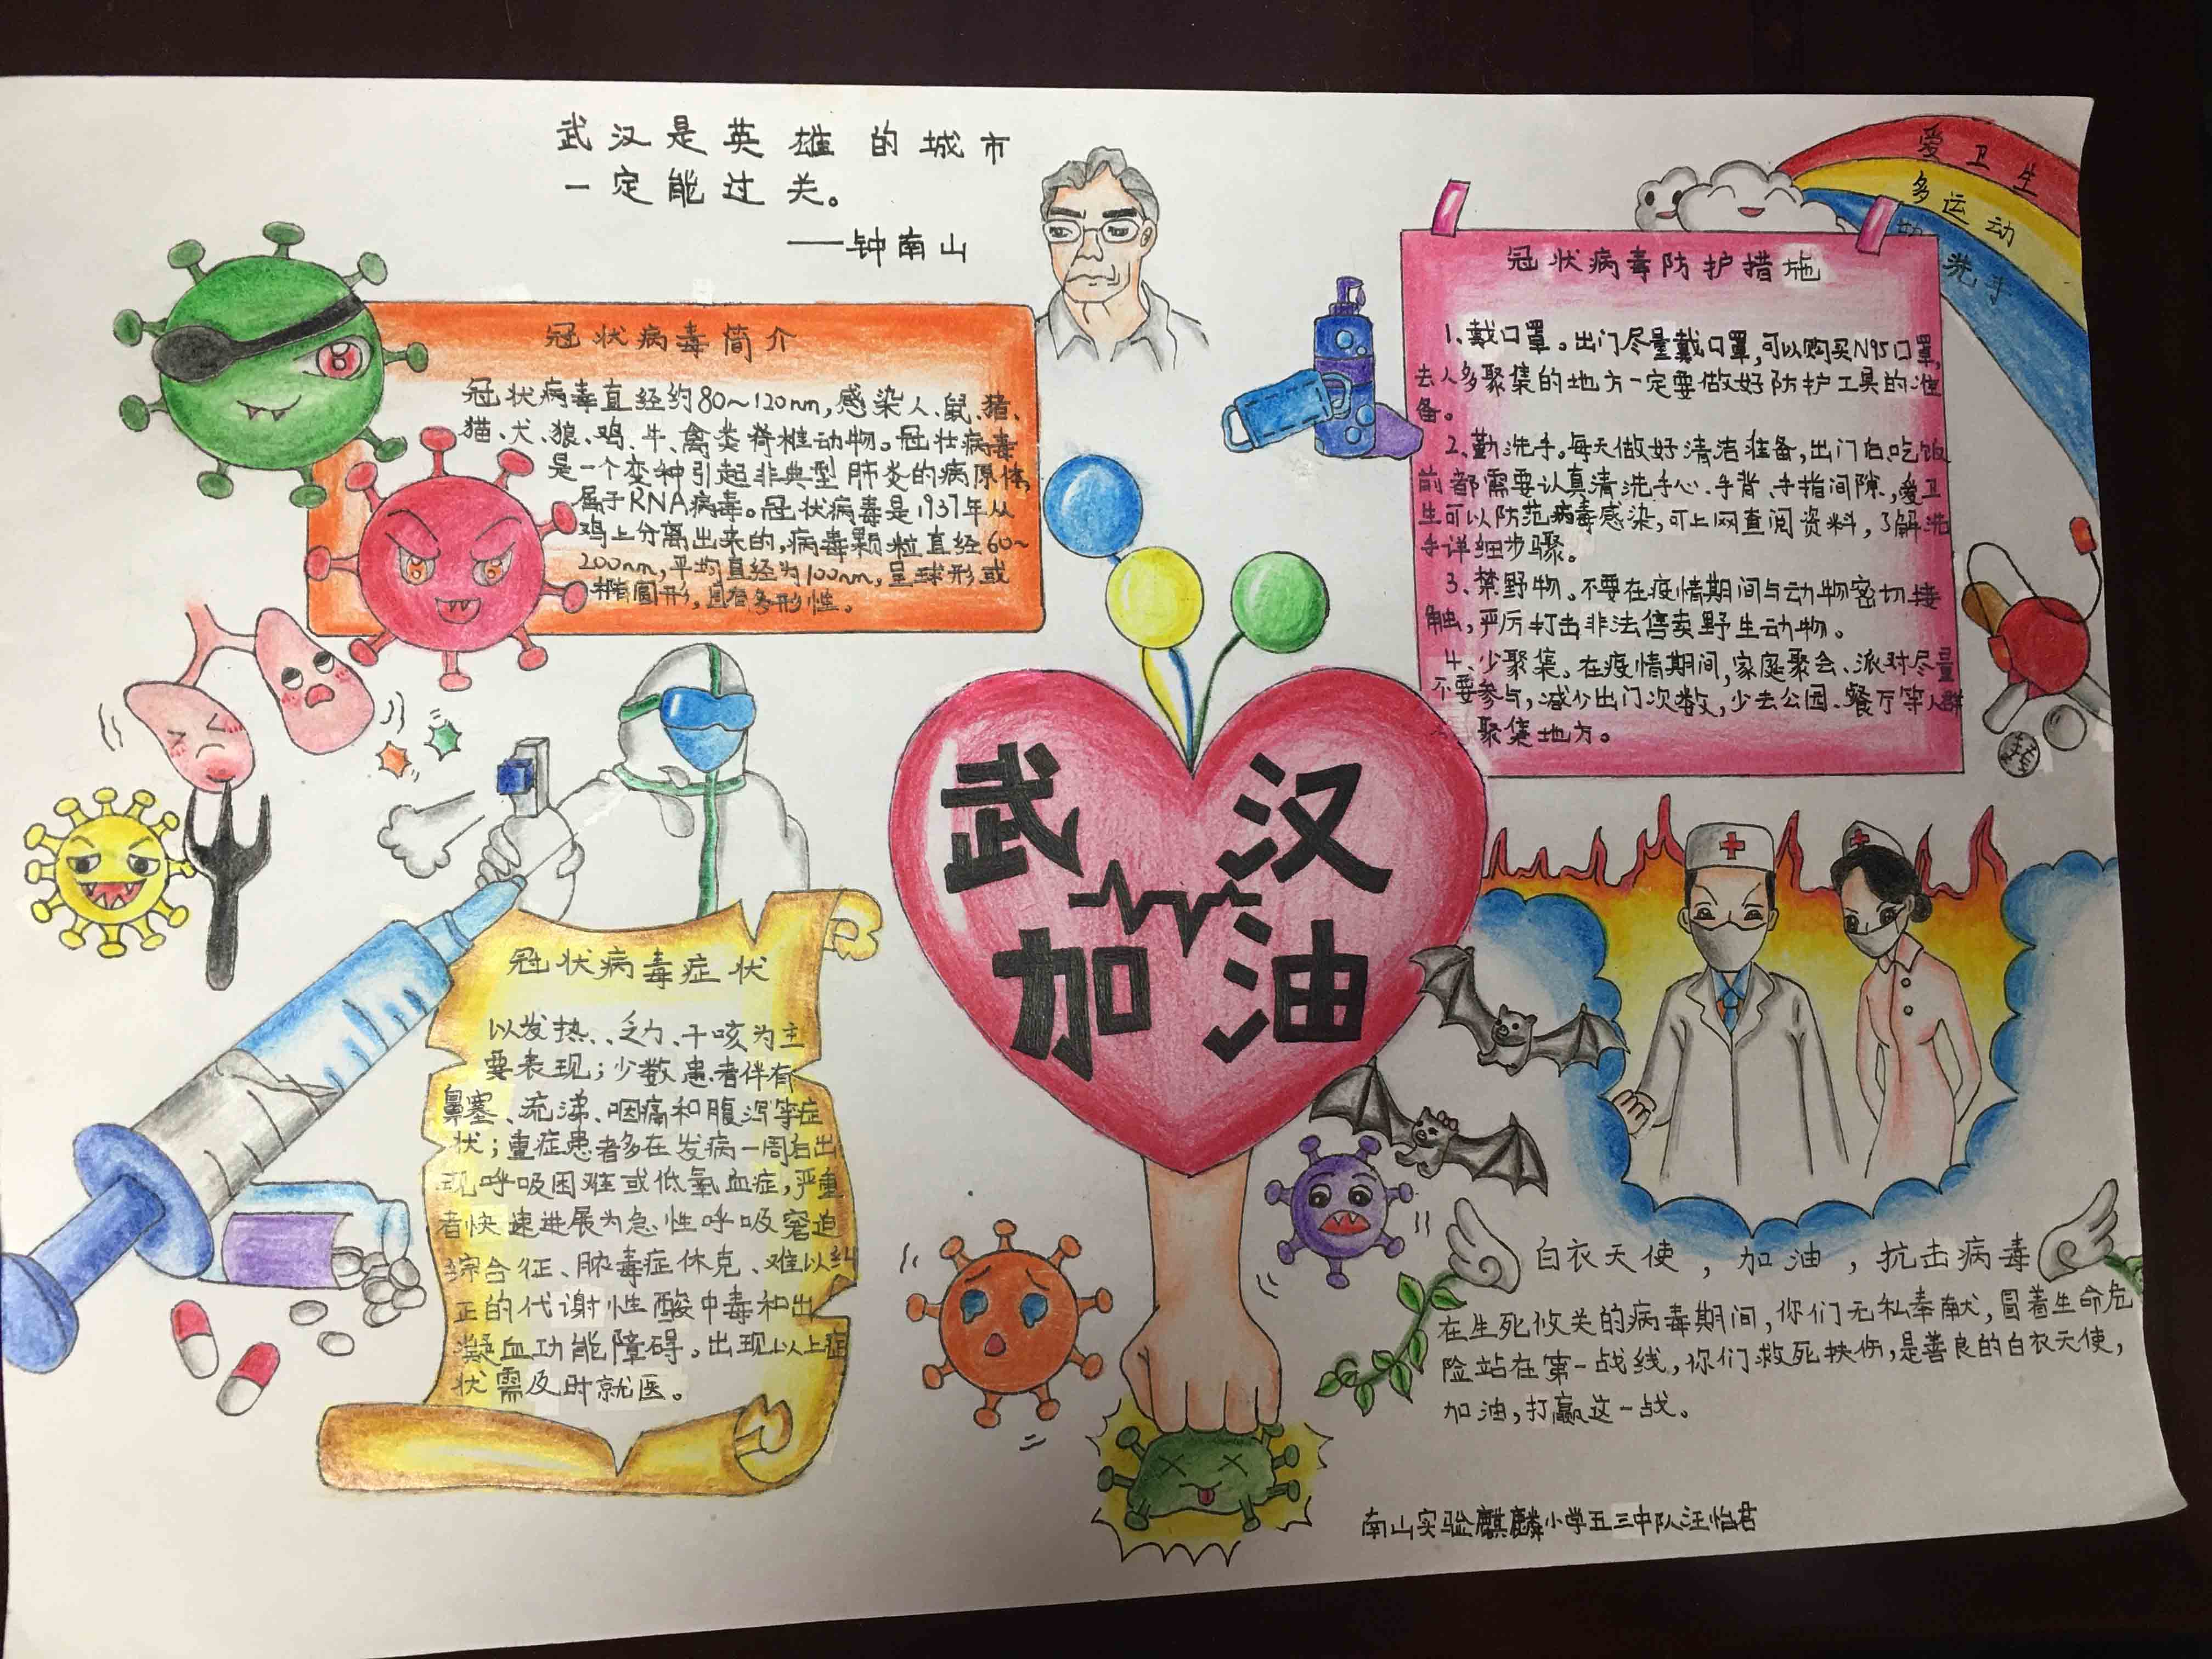 武汉是英雄的城市
一定能过关。
——钟南山
爱卫生
多运动
勤洗手
冠状病毒简介
冠状病毒直经约80~120nm,感染人、鼠、猪、
猫、犬、狼、鸡、牛、禽类脊椎动物。冠壮病毒
是一个变种引起非典型肺炎的病原体,
属于RNA病毒。冠状病毒是1937年从
鸡上分离出来的,病毒颗粒直经60~
200nm,平均直经为100nm,呈球形或
椭圆形,具有多形性。
冠状病毒防护措施
1、戴口罩。出门尽量戴口罩,可以购买N95口罩,
去人多聚集的地方一定要做好防护工具的准
备。
2、勤洗手。每天做好清洁准备,出门后吃饭
前都需要认真清洗手心、手背、手指间隙,爱卫
生可以防范病毒感染,可上网查阅资料,了解洗
手详细步骤。
3、禁野物。不要在疫情期间与动物密切接
触,严厉打击非法售卖野生动物。
4、少聚集。在疫情期间,家庭聚会、派对尽量
不要参与,减少出门次数,少去公园、餐厅等人群
聚集地方。
武汉
加油
冠状病毒症状
以发热、乏力、干咳为主
要表现;少数患者伴有
鼻塞、流涕、咽痛和腹泻等症
状;重症患者多在发病一周后出
现呼吸困难或低氧血症,严重
者快速进展为急性呼吸窘迫
综合征、脓毒症休克、难以纠
正的代谢性酸中毒和出
凝血功能障碍。出现以上症
状需及时就医。
白衣天使,加油,抗击病毒
在生死攸关的病毒期间,你们无私奉献,冒着生命危
险站在第一战线,你们救死扶伤,是善良的白衣天使,
加油,打赢这一战。
南山实验麒麟小学五三中队汪怡君